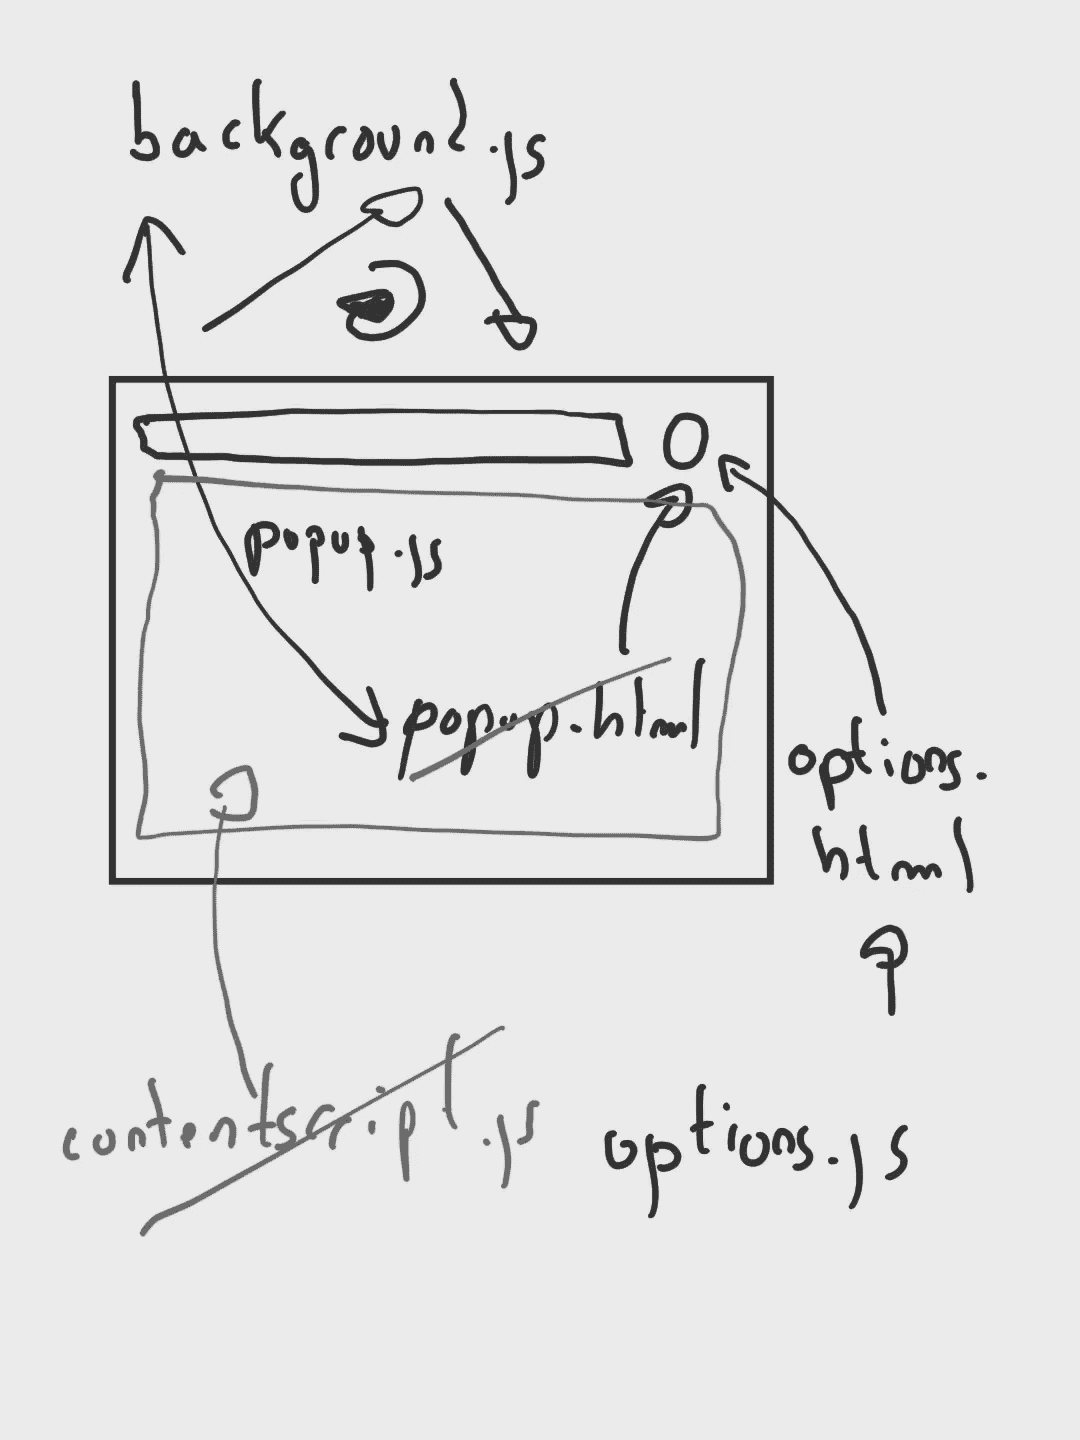 background.js
popup.js
popup.html
options.
html
contentscript.js
options.js